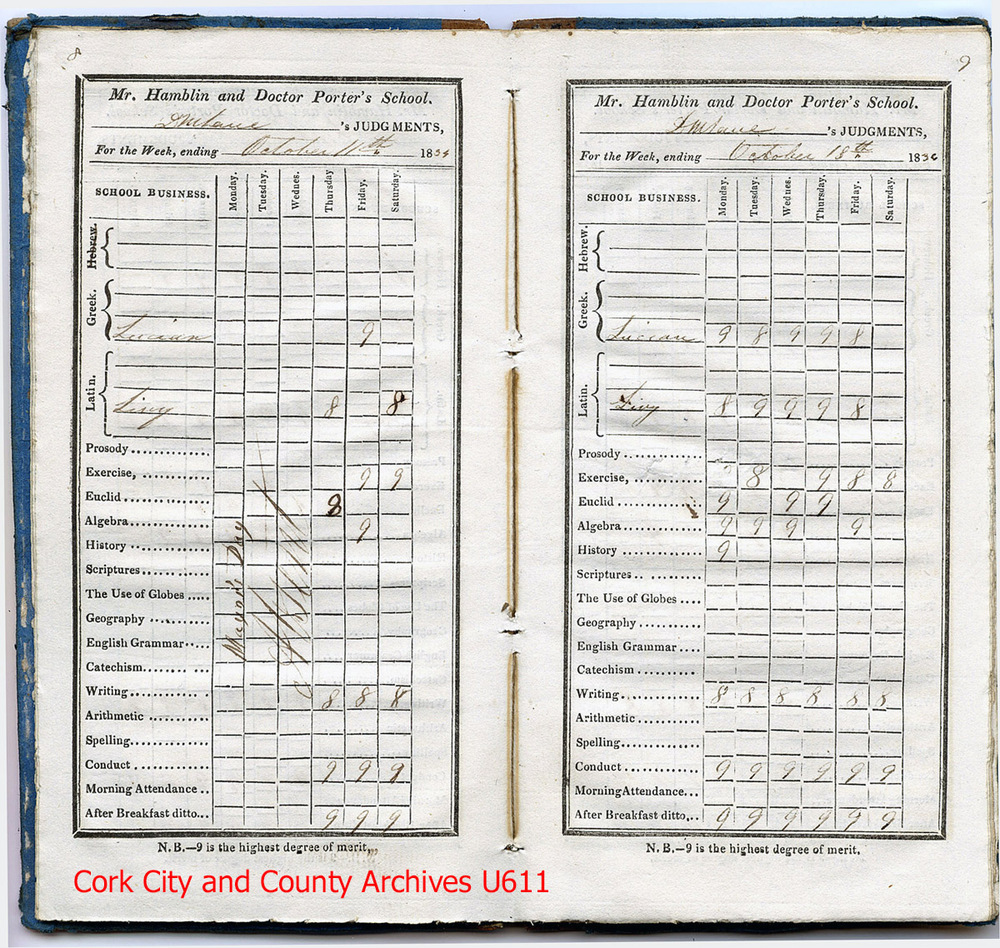 8
Mr. Hamblin and Doctor Porter's School.
's JUDGMENTS,
For the Week, ending October 11th 1834
SCHOOL BUSINESS. Monday. Tuesday. Wednes. Thursday Friday. Saturday.
Hebrew.
Greek.
Lucian 9
Latin.
Livy 8 8
Prosody
Exercise, 9 9
Euclid 8
Algebra 9
History
Scriptures
The Use of Globes
Geography
English Grammar
Catechism
Writing 8 8 8
Arithmetic
Spelling
Conduct 9 9 9
Morning Attendance
After Breakfast ditto 9 9 9
Mayor's Day
N.B.—9 is the highest degree of merit.
9
Mr. Hamblin and Doctor Porter's School.
's JUDGMENTS,
For the Week, ending October 18th 183
SCHOOL BUSINESS. Monday. Tuesday. Wednes. Thursday. Friday. Saturday.
Hebrew.
Greek.
Lucian 9 8 9 9 8
Latin.
Livy 8 9 9 9 8
Prosody
Exercise, 8 9 8 8
Euclid 9 9 9
Algebra 9 9 9 9
History 9
Scriptures
The Use of Globes
Geography
English Grammar
Catechism
Writing 8 8 8 8 8 8
Arithmetic
Spelling
Conduct 9 9 9 9 9 9
Morning Attendance
After Breakfast ditto 9 9 9 9 9 9
N.B.—9 is the highest degree of merit.
Cork City and County Archives U611